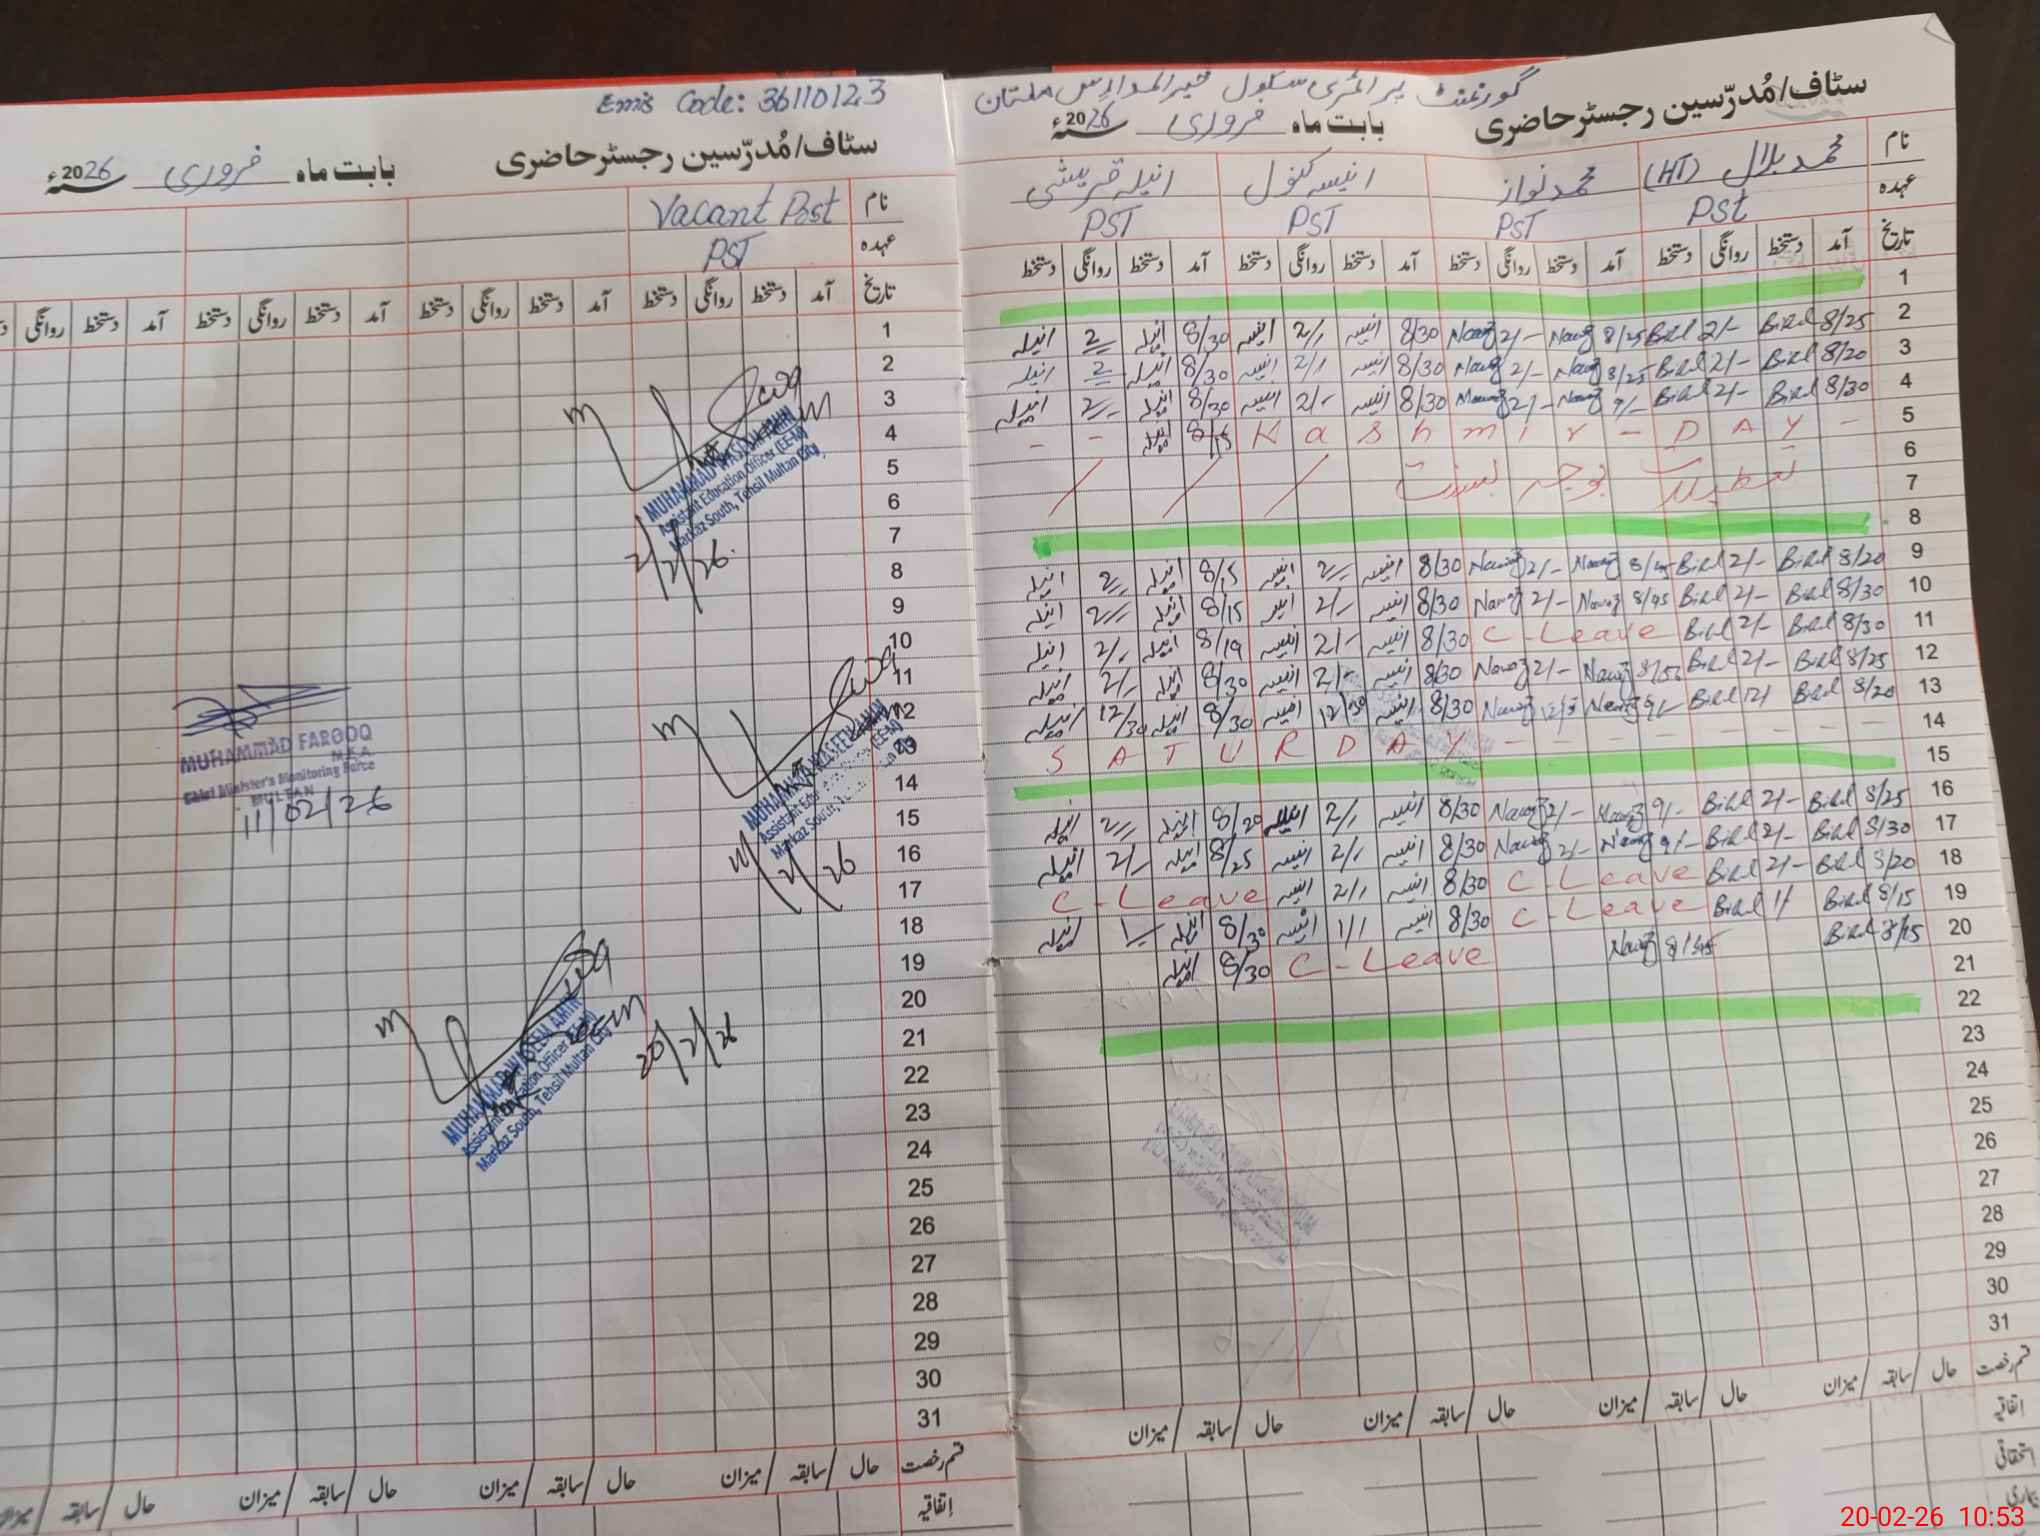 گورنمنٹ پرائمری سکول خیرالمدارس ملتان
سٹاف/مُدرّسین رجسٹر حاضری بابت ماہ فروری سنہ 2026ء
نام محمد بلال (HT) محمد نواز انیسہ کنول انیلہ قریشی
عہدہ PST PST PST PST
تاریخ آمد دستخط روانگی دستخط آمد دستخط روانگی دستخط آمد دستخط روانگی دستخط آمد دستخط روانگی دستخط
1
2 8/25 Bilal 2/- Bilal 8/25 Nawaz 2/- Nawaz 8/30 انیسہ 2/- انیسہ 8/30 انیلہ 2/- انیلہ
3 8/20 Bilal 2/- Bilal 8/25 Nawaz 2/- Nawaz 8/30 انیسہ 2/- انیسہ 8/30 انیلہ 2 انیلہ
4 8/30 Bilal 2/- Bilal 9/- Nawaz 2/- Nawaz 8/30 انیسہ 2/- انیسہ 8/30 انیلہ 2/- انیلہ
5 Kashmir - DAY - 8/15 انیلہ - -
6 تعطیلات بوجہ بسنت
7
8
9 8/20 Bilal 2/- Bilal 8/45 Nawaz 2/- Nawaz 8/30 انیسہ 2/- انیسہ 8/15 انیلہ 2/- انیلہ
10 8/30 Bilal 2/- Bilal 8/45 Nawaz 2/- Nawaz 8/30 انیسہ 2/- انیسہ 8/15 انیلہ 2/- انیلہ
11 8/30 Bilal 2/- Bilal C - Leave 8/30 انیسہ 2/- انیسہ 8/19 انیلہ 2/- انیلہ
12 8/25 Bilal 2/- Bilal 8/50 Nawaz 2/- Nawaz 8/30 انیسہ 2/- انیسہ 8/30 انیلہ 2/- انیلہ
13 8/20 Bilal 12/ Bilal 9/- Nawaz Nawaz 8/30 انیسہ 12/30 انیسہ 8/30 انیلہ 12/30 انیلہ
14 SATURDAY - - - - - - -
15
16 8/25 Bilal 2/- Bilal 9/- Nawaz 2/- Nawaz 8/30 انیسہ 2/- انیسہ 8/20 انیلہ 2/- انیلہ
17 8/30 Bilal 2/- Bilal 9/- Nawaz 2/- Nawaz 8/30 انیسہ 2/- انیسہ 8/25 انیلہ 2/- انیلہ
18 8/20 Bilal 2/- Bilal C - Leave 8/30 انیسہ 2/- انیسہ C - Leave
19 8/15 Bilal 1/ Bilal C - Leave 8/30 انیسہ 1/- انیسہ 8/30 انیلہ 1/- انیلہ
20 8/15 Bilal 8/45 Nawaz C - Leave 8/30 انیلہ
21
22
23
24
25
26
27
28
29
30
31
قسم رخصت حال / سابقہ / میزان حال / سابقہ / میزان حال / سابقہ / میزان حال / سابقہ / میزان
اتفاقیہ
استحقاقی
بیماری
Emis Code: 36110123
سٹاف/مُدرّسین رجسٹر حاضری بابت ماہ فروری سنہ 2026ء
نام Vacant Post
عہدہ PST
تاریخ آمد دستخط روانگی دستخط آمد دستخط روانگی دستخط آمد دستخط روانگی دستخط آمد دستخط روانگی
1
2
3
4
5
6
7
8
9
10
11
12
13
14
15
16
17
18
19
20
21
22
23
24
25
26
27
28
29
30
31
MUHAMMAD WASEEM AMIN
Assistant Education Officer (EE-M)
Markaz South, Tehsil Multan City
2/2/26
MUHAMMAD WASEEM AMIN
Markaz South
11/2/26
MUHAMMAD FAROOQ
M.E.A.
Chief Minister's Monitoring Force
MULTAN
11/02/26
MUHAMMAD WASEEM AMIN
Assistant Education Officer (EE-M)
Markaz South, Tehsil Multan City
20/2/26
قسم رخصت حال / سابقہ / میزان حال / سابقہ / میزان حال / سابقہ / میزان حال / سابقہ / میزان
اتفاقیہ
20-02-26 10:53